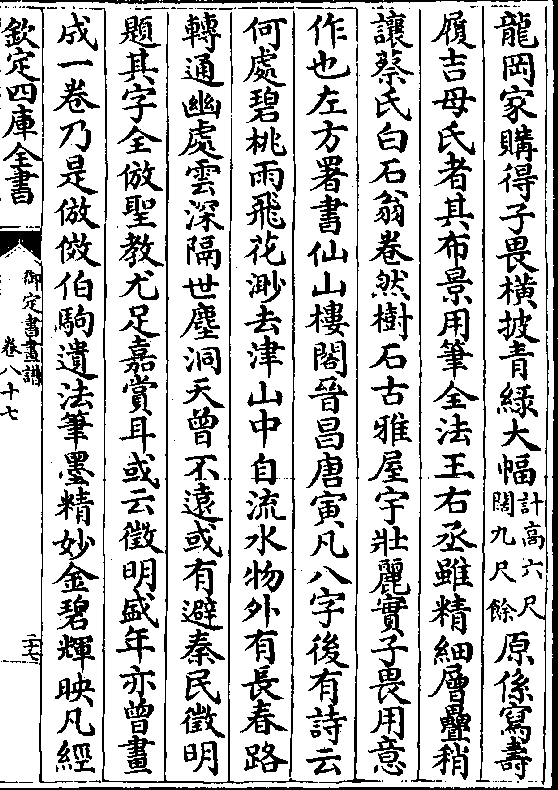 龍岡家購得子畏橫披青綠大幅計高六尺闊九尺餘原係寫壽
履吉母氏者其布景用筆全法王右丞雖精細層疊稍
讓蔡氏白石翁卷然樹石古雅屋宇壯麗實子畏用意
作也左方署書仙山樓閣晉昌唐寅凡八字後有詩云
何處碧桃雨飛花渺去津山中自流水物外有長春路
轉通幽處雲深隔世塵洞天曾不遠或有避秦民徵明
題其字全倣聖教尤足嘉賞耳或云徵明盛年亦曾畫
成一卷乃是倣傚伯駒遺法筆墨精妙金碧輝映凡經
欽定四庫全書
御定書畫譜
卷八十七
二十七